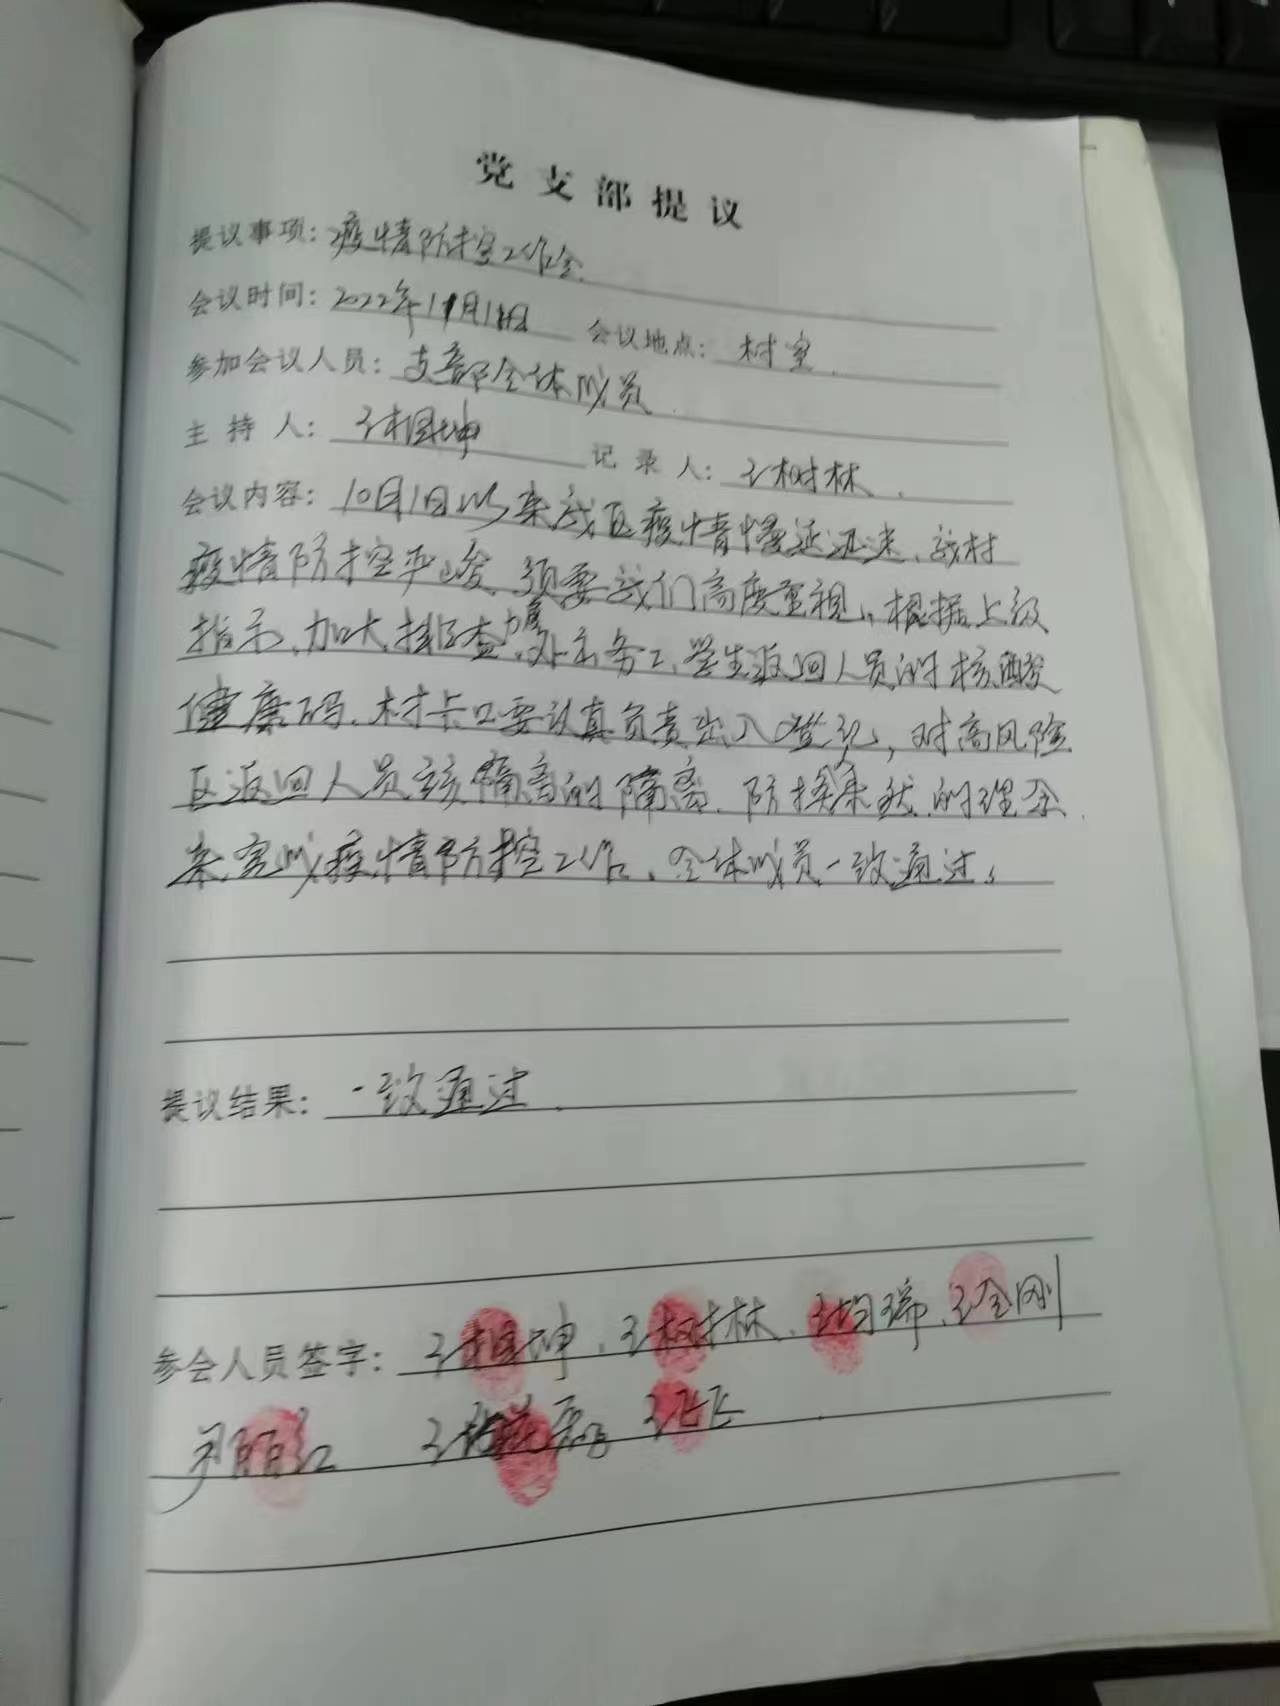 党支部提议
提议事项：疫情防控工作会.
会议时间：2022年11月1日 会议地点：村室.
参加会议人员：支部全体成员.
主持人：王相坤 记录人：王树林.
会议内容：10月1日以来我区疫情慢延迅速、我村
疫情防控严峻、须要我们高度重视，根据上级
指示、加大排查力度，外出务工、学生返回人员的核酸
健康码、村卡口要认真负责出入登记，对高风险
区返回人员该隔离的隔离、防控 的理念
来完成疫情防控工作、全体成员一致通过。
提议结果：一致通过.
参会人员签字：王相坤、王树林、王均瑞、王全刚
尹丽红 王 王飞